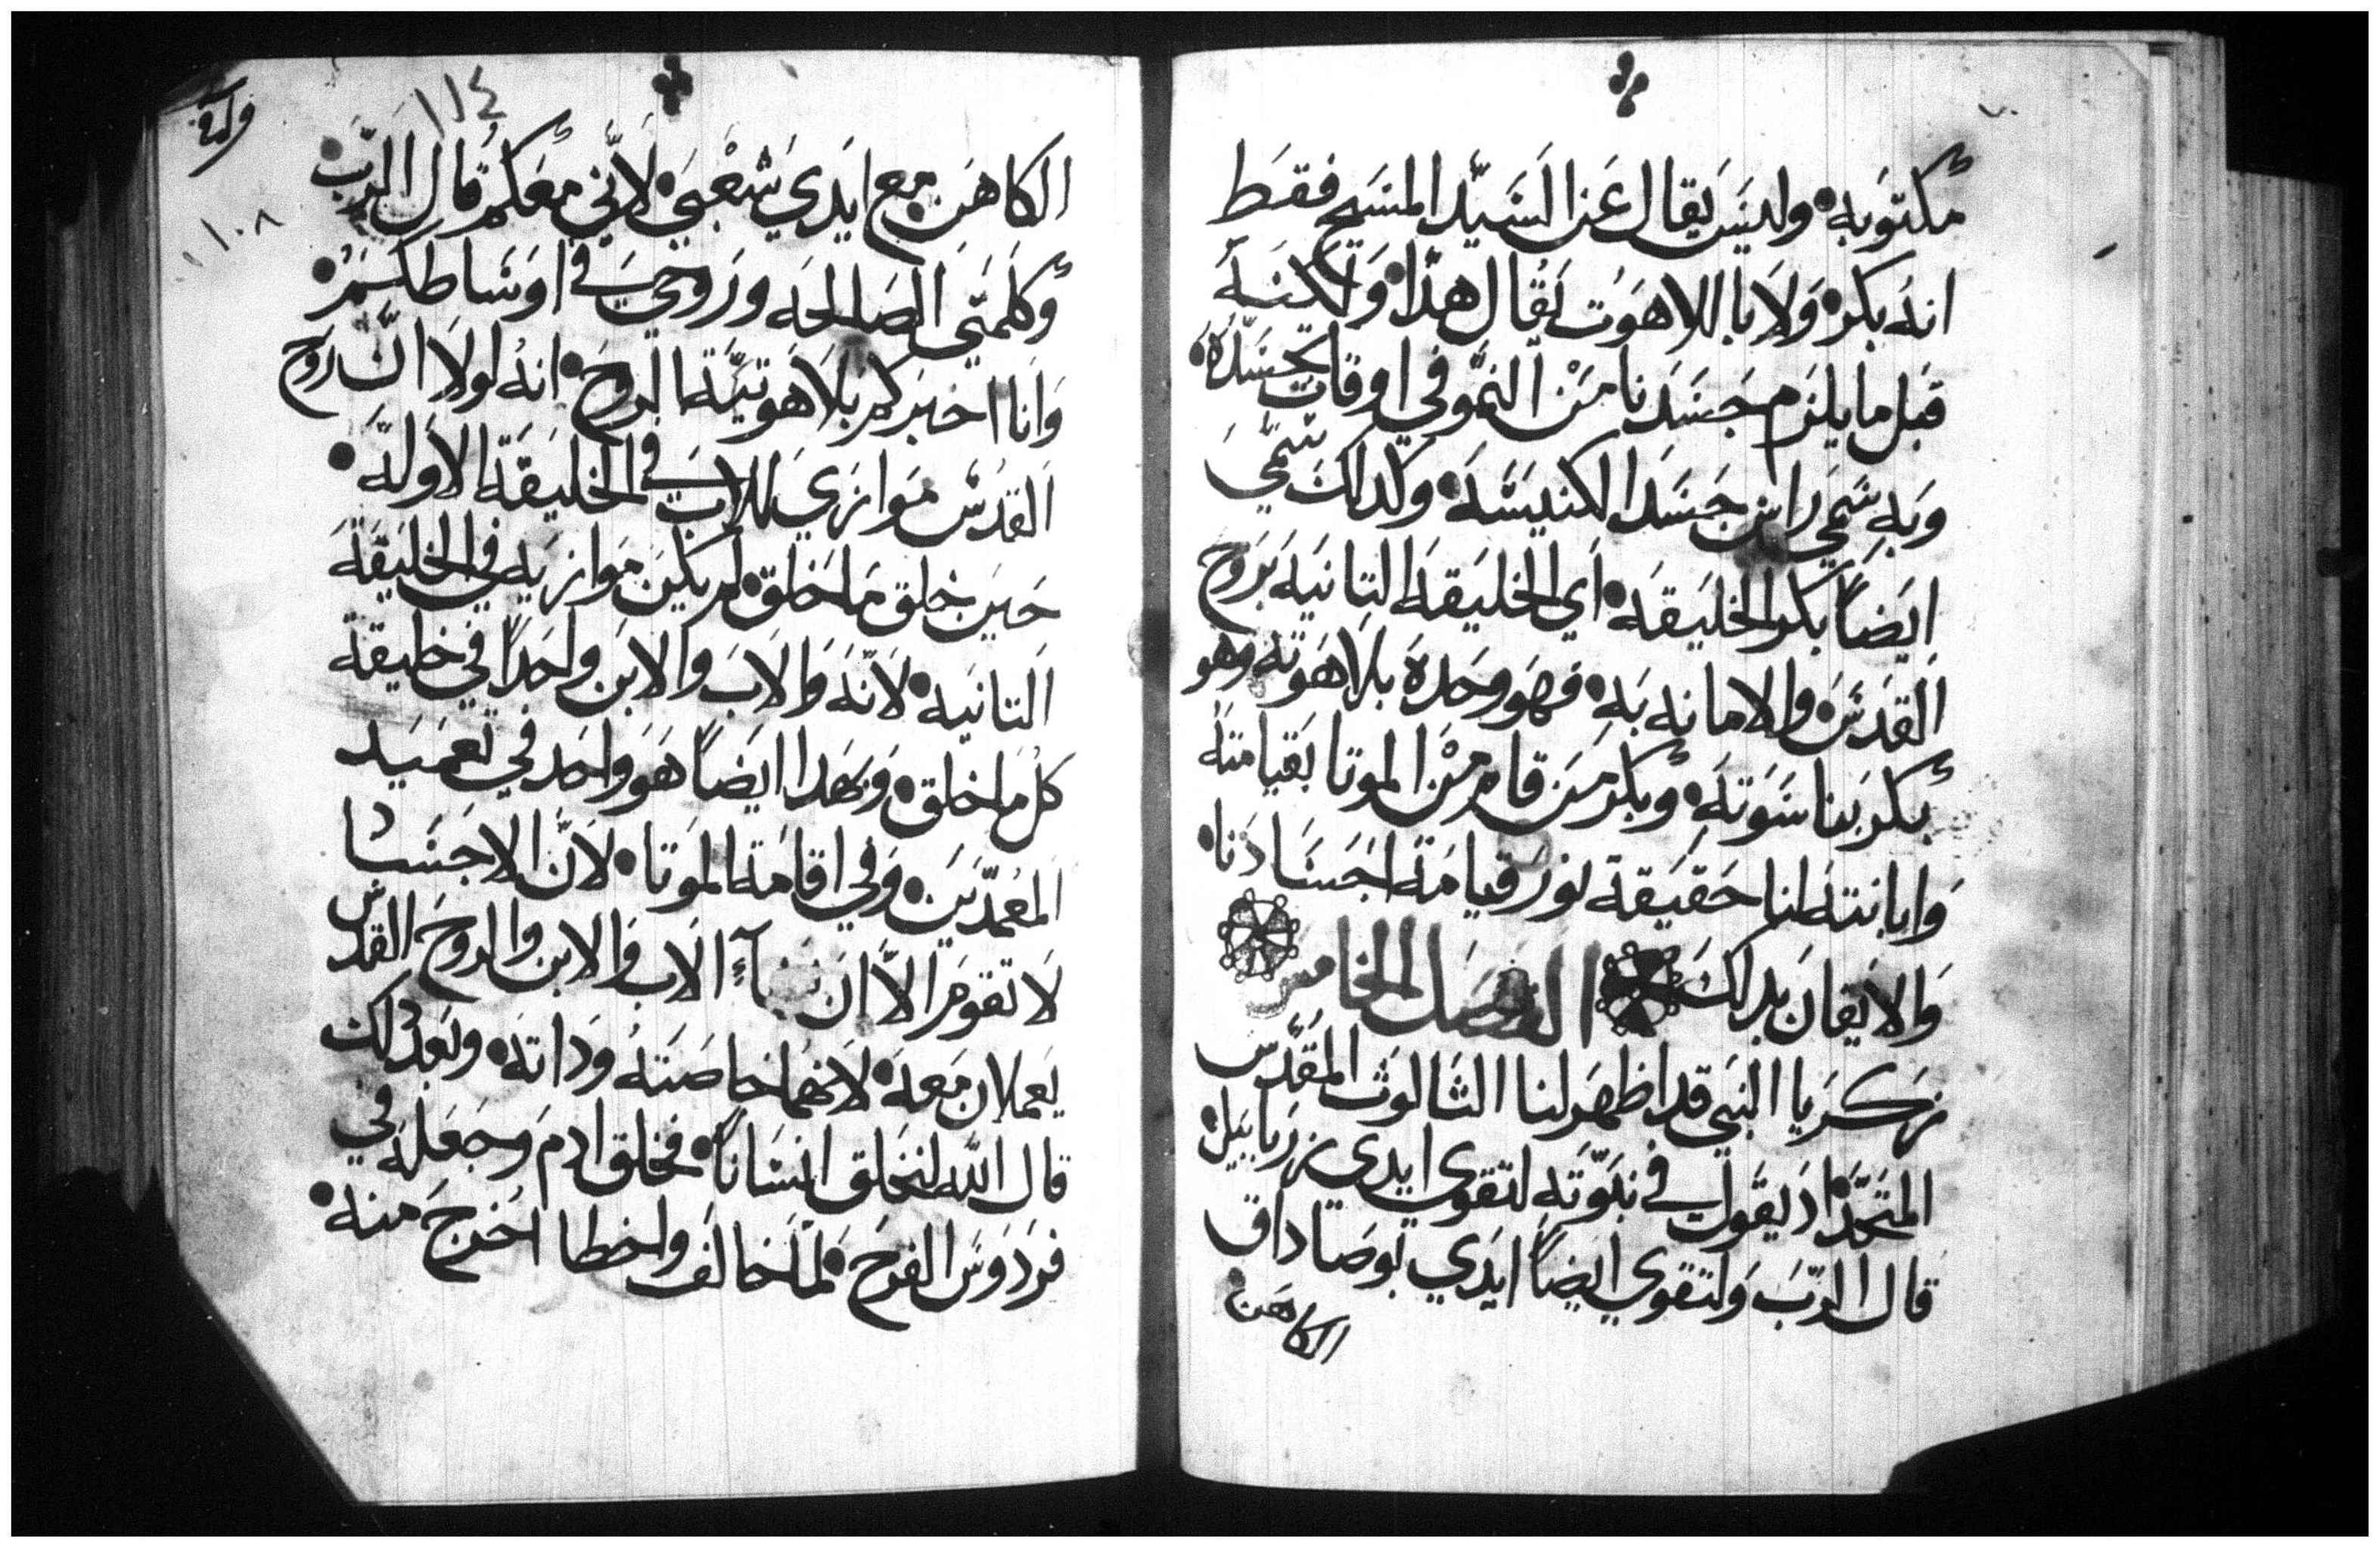 مكتوبه • وليس يقال عن السيد المسيح فقط
انه بكر • ولا باللاهوت يقال هذا • ولكنه
قبل ما يلزم جسدنا من النمو في اوقات تجسده •
وبه سمي راس جسد الكنيسه • وكدالك سمي
ايضاً بكر الخليقه • اي الخليقه التانيه بروح
القدس والامانه به • فهو وحده بلاهوته وهو
بكر بناسوته • وبكر من قام من الموتا بقيامته
وابانته لنا حقيقة نور قيامة اجسادنا •
والايقان بدلك الفصل الخامس
زكريا النبي قد اظهر لنا الثالوث المقدس
المتحد • اذ يقول في نبوّته لتقوي ايدي زربابيل •
قال الرب ولتقوي ايضاً ايدي يوصاداق
الكاهن •
١١٤
وقف
١٠٨
الكاهن مع ايدي شعبي • لاني معكم قال الرب •
وكلمتي الصالحه وروحي في اوساطكم •
وانا اخبركم بلاهوتية الروح • انه لولا ان روح
القدس موازي للاب في الخليقة الاوله •
حين خلق ما خلق • لم يكن موازيه في الخليقة
التانيه • لانه والاب والابن واحداً في خليقة
كل ما خلق • وبهدا ايضاً هو واحد في تعميد
المعمدين • وفي اقامة الموتا • لان الاجساد
لا تقوم الا ان شاء الاب والابن والروح القدس
يعملان معه • لانهما خاصته وداته • وبعد دلك
قال الله لنخلق انساناً • فخلق ادم وجعله في
فردوس الفرح • لما خالف واخطا اخرج منه •